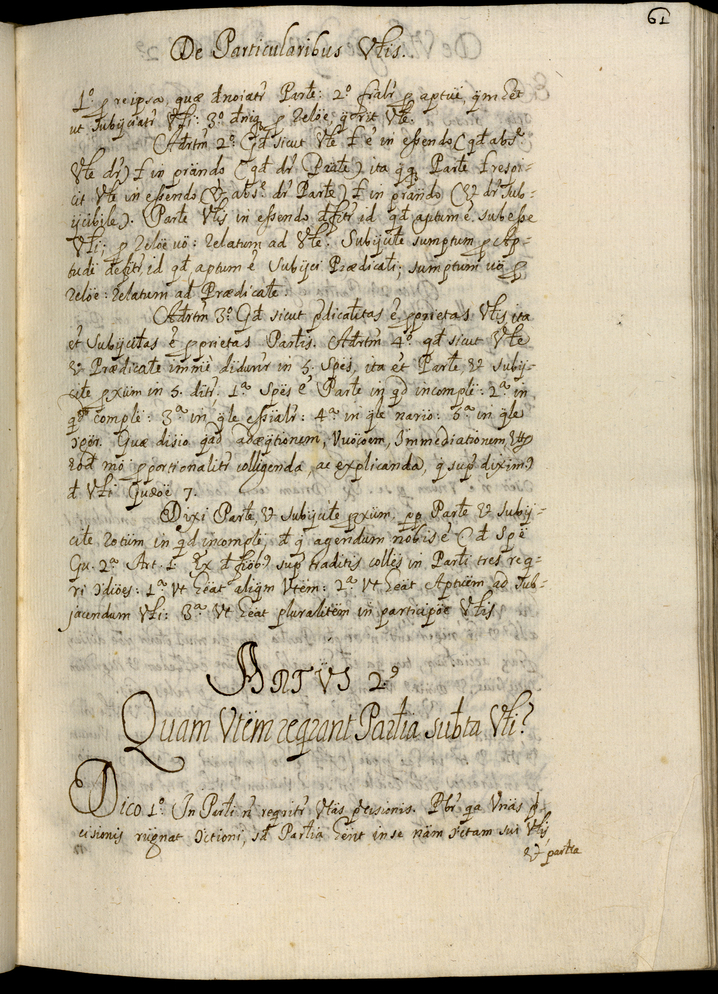 61
De Particularibus Vlis.
1º p reipsa, quæ dnoiatr Prte: 2º fralr p aptuẽ, qm ẽet
ut subijciatr Vli: 3º dniq p relõe, qrit Vle.
Adrtm 2º Qd sicut Vle ł ẽ in essendo (qd absᵉ
Vle dr) ł in prãndo (qd dr Prãte) ita qq Parte ł resor-
cit Vle in essendo (& absᵉ dr Parte) ł in prãndo (& dr sub-
ijcibile). Parte Vlis in essendo dfitr id qd aptum ẽ subesse
Vli: p relõe uõ: relatum ad Vle. Subijcite sumptum p ap-
tudẽ dfitr, id qd aptum ẽ subijci Prædicati; sumptum uõ p
relõe: relatum ad Prædicate.
Adrtm 3º Qd sicut pdicalitas ẽ pprietas Vlis, ita
et subijcitas ẽ pprietas Partis. Adrtm 4º qd sicut Vle
& Prædicate immẽ didunr in 5. Spẽs, ita et Parte, & subij-
cite pxũm in 5. ditr. 1ª Spẽs ẽ Parte in qd incomplẽ: 2ª in
qd complẽ: 3ª in qle essialr: 4ª in qle nario: 5ª in qle
Quæ disio qad adæqtionem, Vuocõem, Immediationem,
eod mõ pportionalitr colligenda, ac explicanda, q supª diximꝰ
d Vli Quæõe 7.
Dixi Parte, & subijcite pxũm, pp Parte & subij-
cite totũm in qd incomplẽ, d q agendum nobis ẽ (d Spẽ
Qu. 2ª Art. 1. Ex d supª traditis colles in Parti tres req-
ri 1ª Vt hẽat aliqm Vtẽm: 2ª Vt hẽat Aptuẽm ad sub-
jacendum Vli: 3ª Vt hẽat pluralitẽm in participõe Vlis
ARTVS 2º
Quam Vtẽm reqrant Partia subta Vli?
Dico 1º In Parti ñ reqritr Vtãs pcisionis. Pbr qa Vnãs p-
cisionis rũgnat sd Partia hẽnt in se nãm sui Vlis
& partia